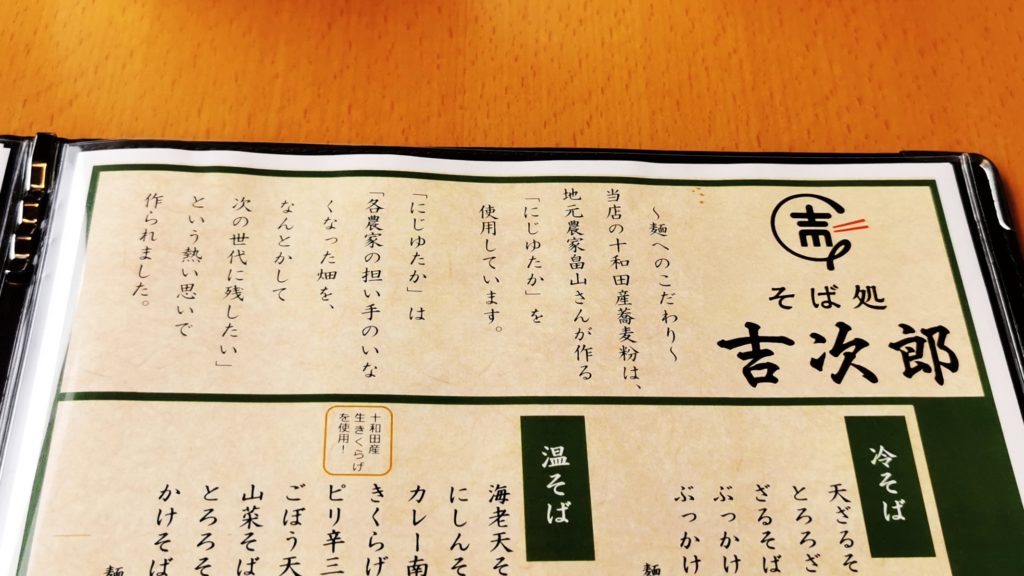 そば処
吉次郎
～麺へのこだわり～
当店の十和田産蕎麦粉は、
地元農家畠山さんが作る
「にじゆたか」を
使用しています。
「にじゆたか」は
「各農家の担い手のいな
くなった畑を、
なんとかして
次の世代に残したい」
という熱い思いで
作られました。
冷そば
天ざるそ
とろろざ
ざるそば
ぶっかけ
ぶっかけ
麺
温そば
海老天そ
にしんそ
カレー南
きくらげ
十和田産
生きくらげ
を使用！
ピリ辛三
ごぼう天
山菜そば
とろろそ
かけそば
麺